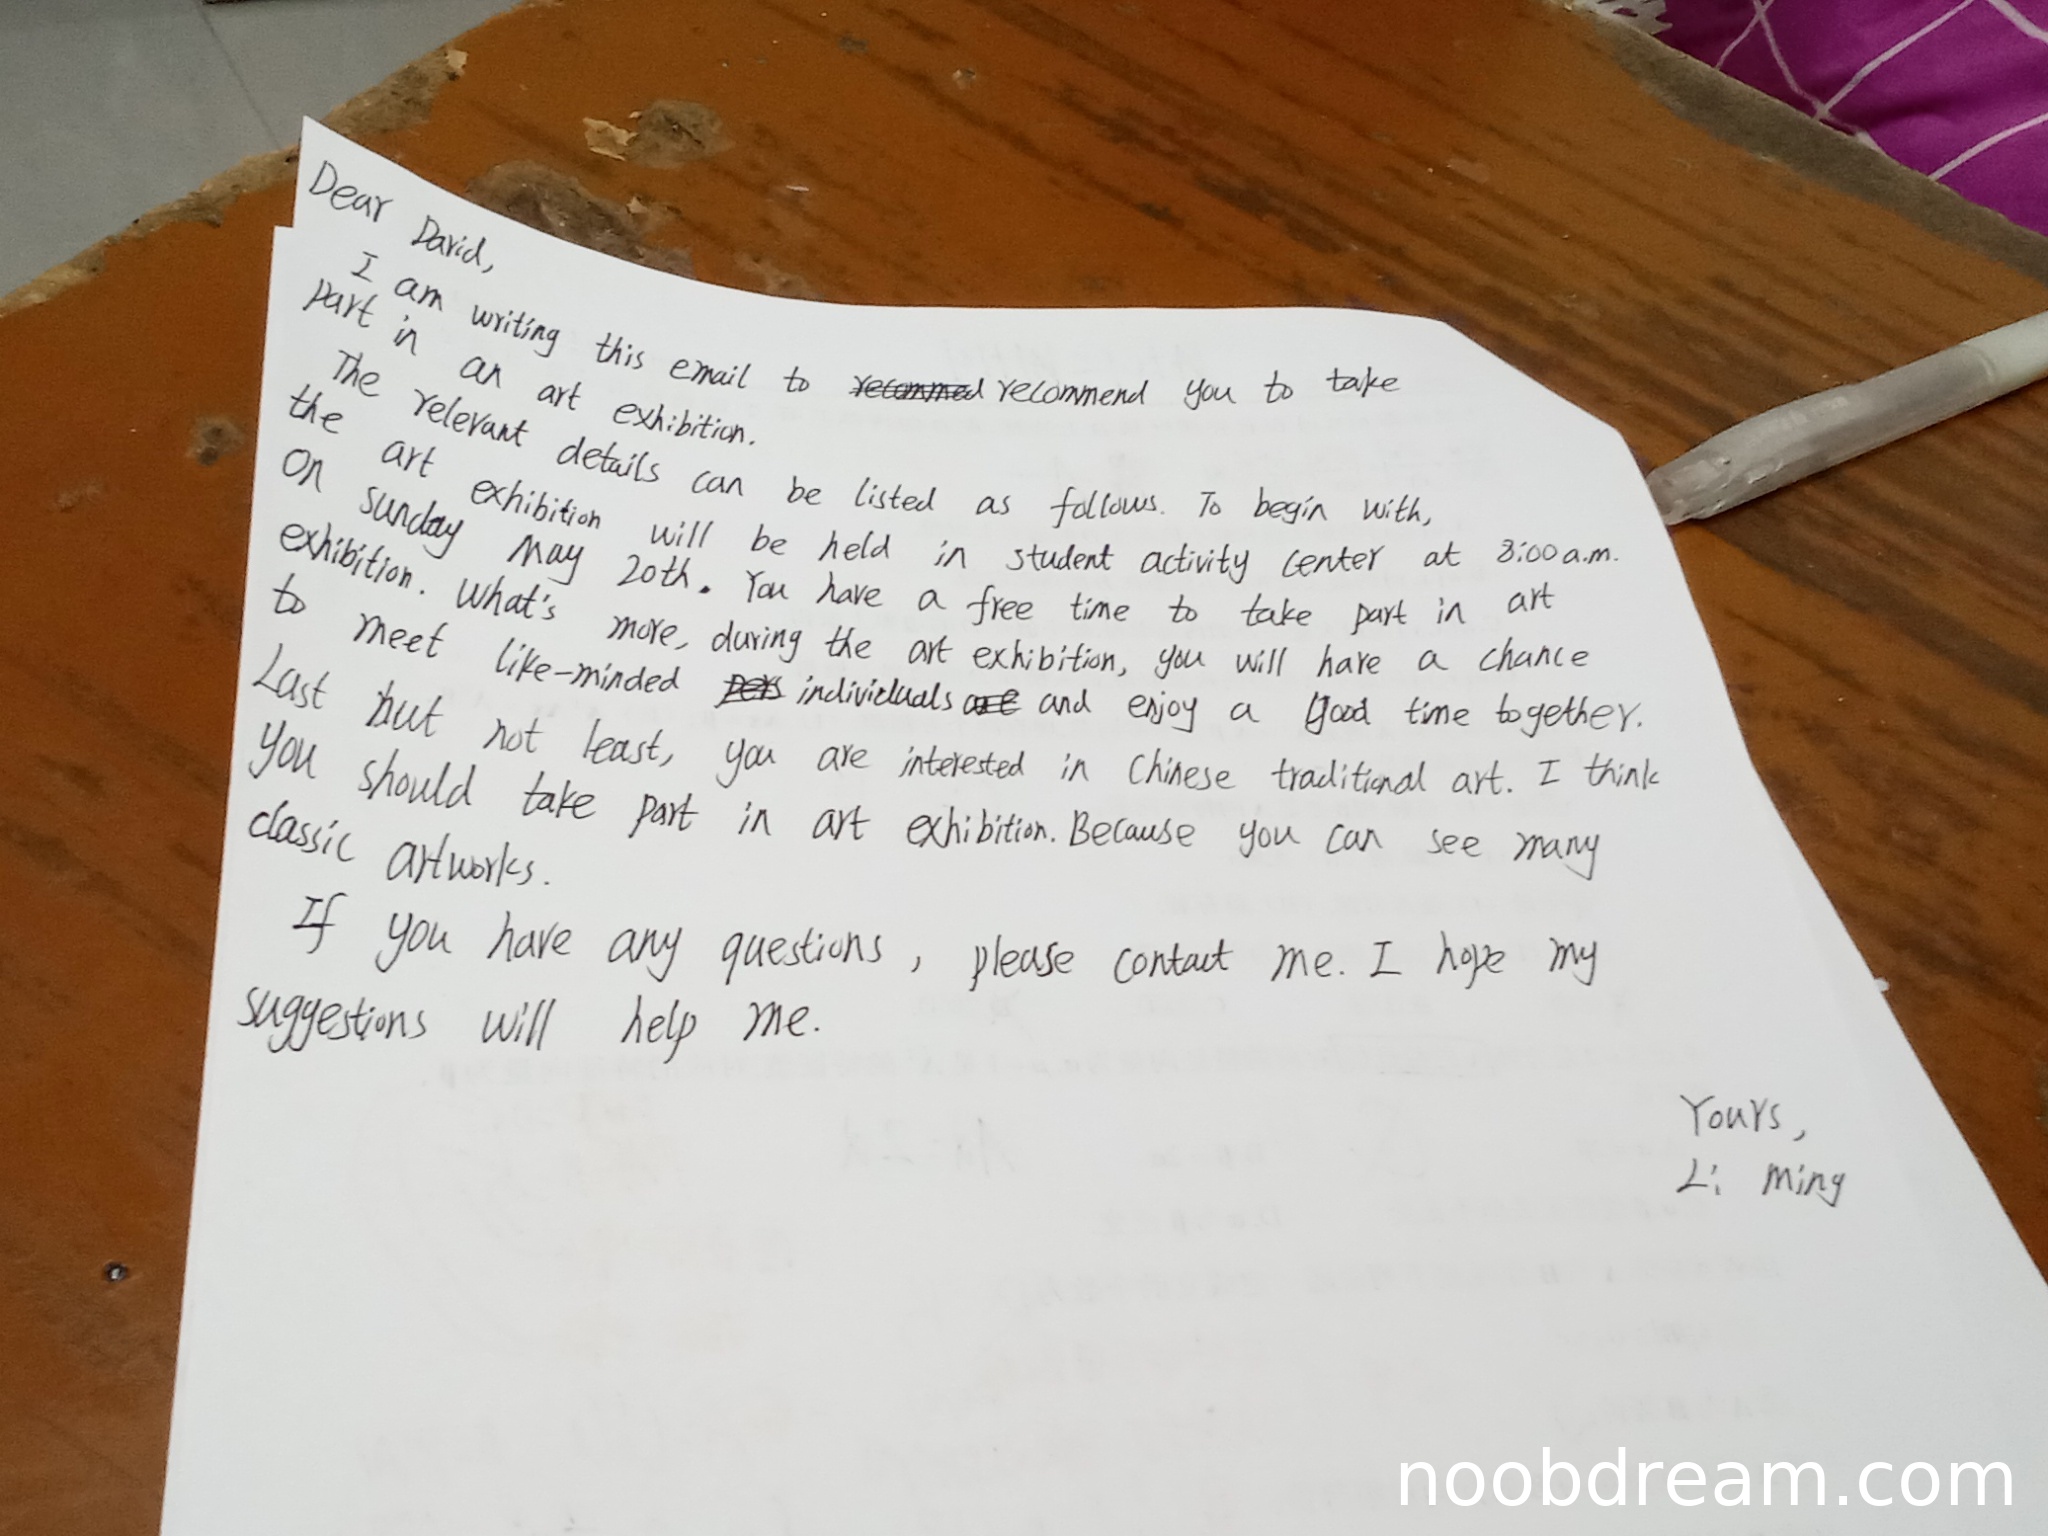 Dear David,
I am writing this email to recommend you to take
part in an art exhibition.
The relevant details can be listed as follows. To begin with,
the art exhibition will be held in student activity center at 8:00 a.m.
on sunday May 20th. You have a free time to take part in art
exhibition. What's more, during the art exhibition, you will have a chance
to meet like-minded individuals and enjoy a good time together.
Last but not least, you are interested in Chinese traditional art. I think
you should take part in art exhibition. Because you can see many
classic artworks.
If you have any questions, please contact me. I hope my
suggestions will help me.
Yours,
Li Ming
noobdream.com